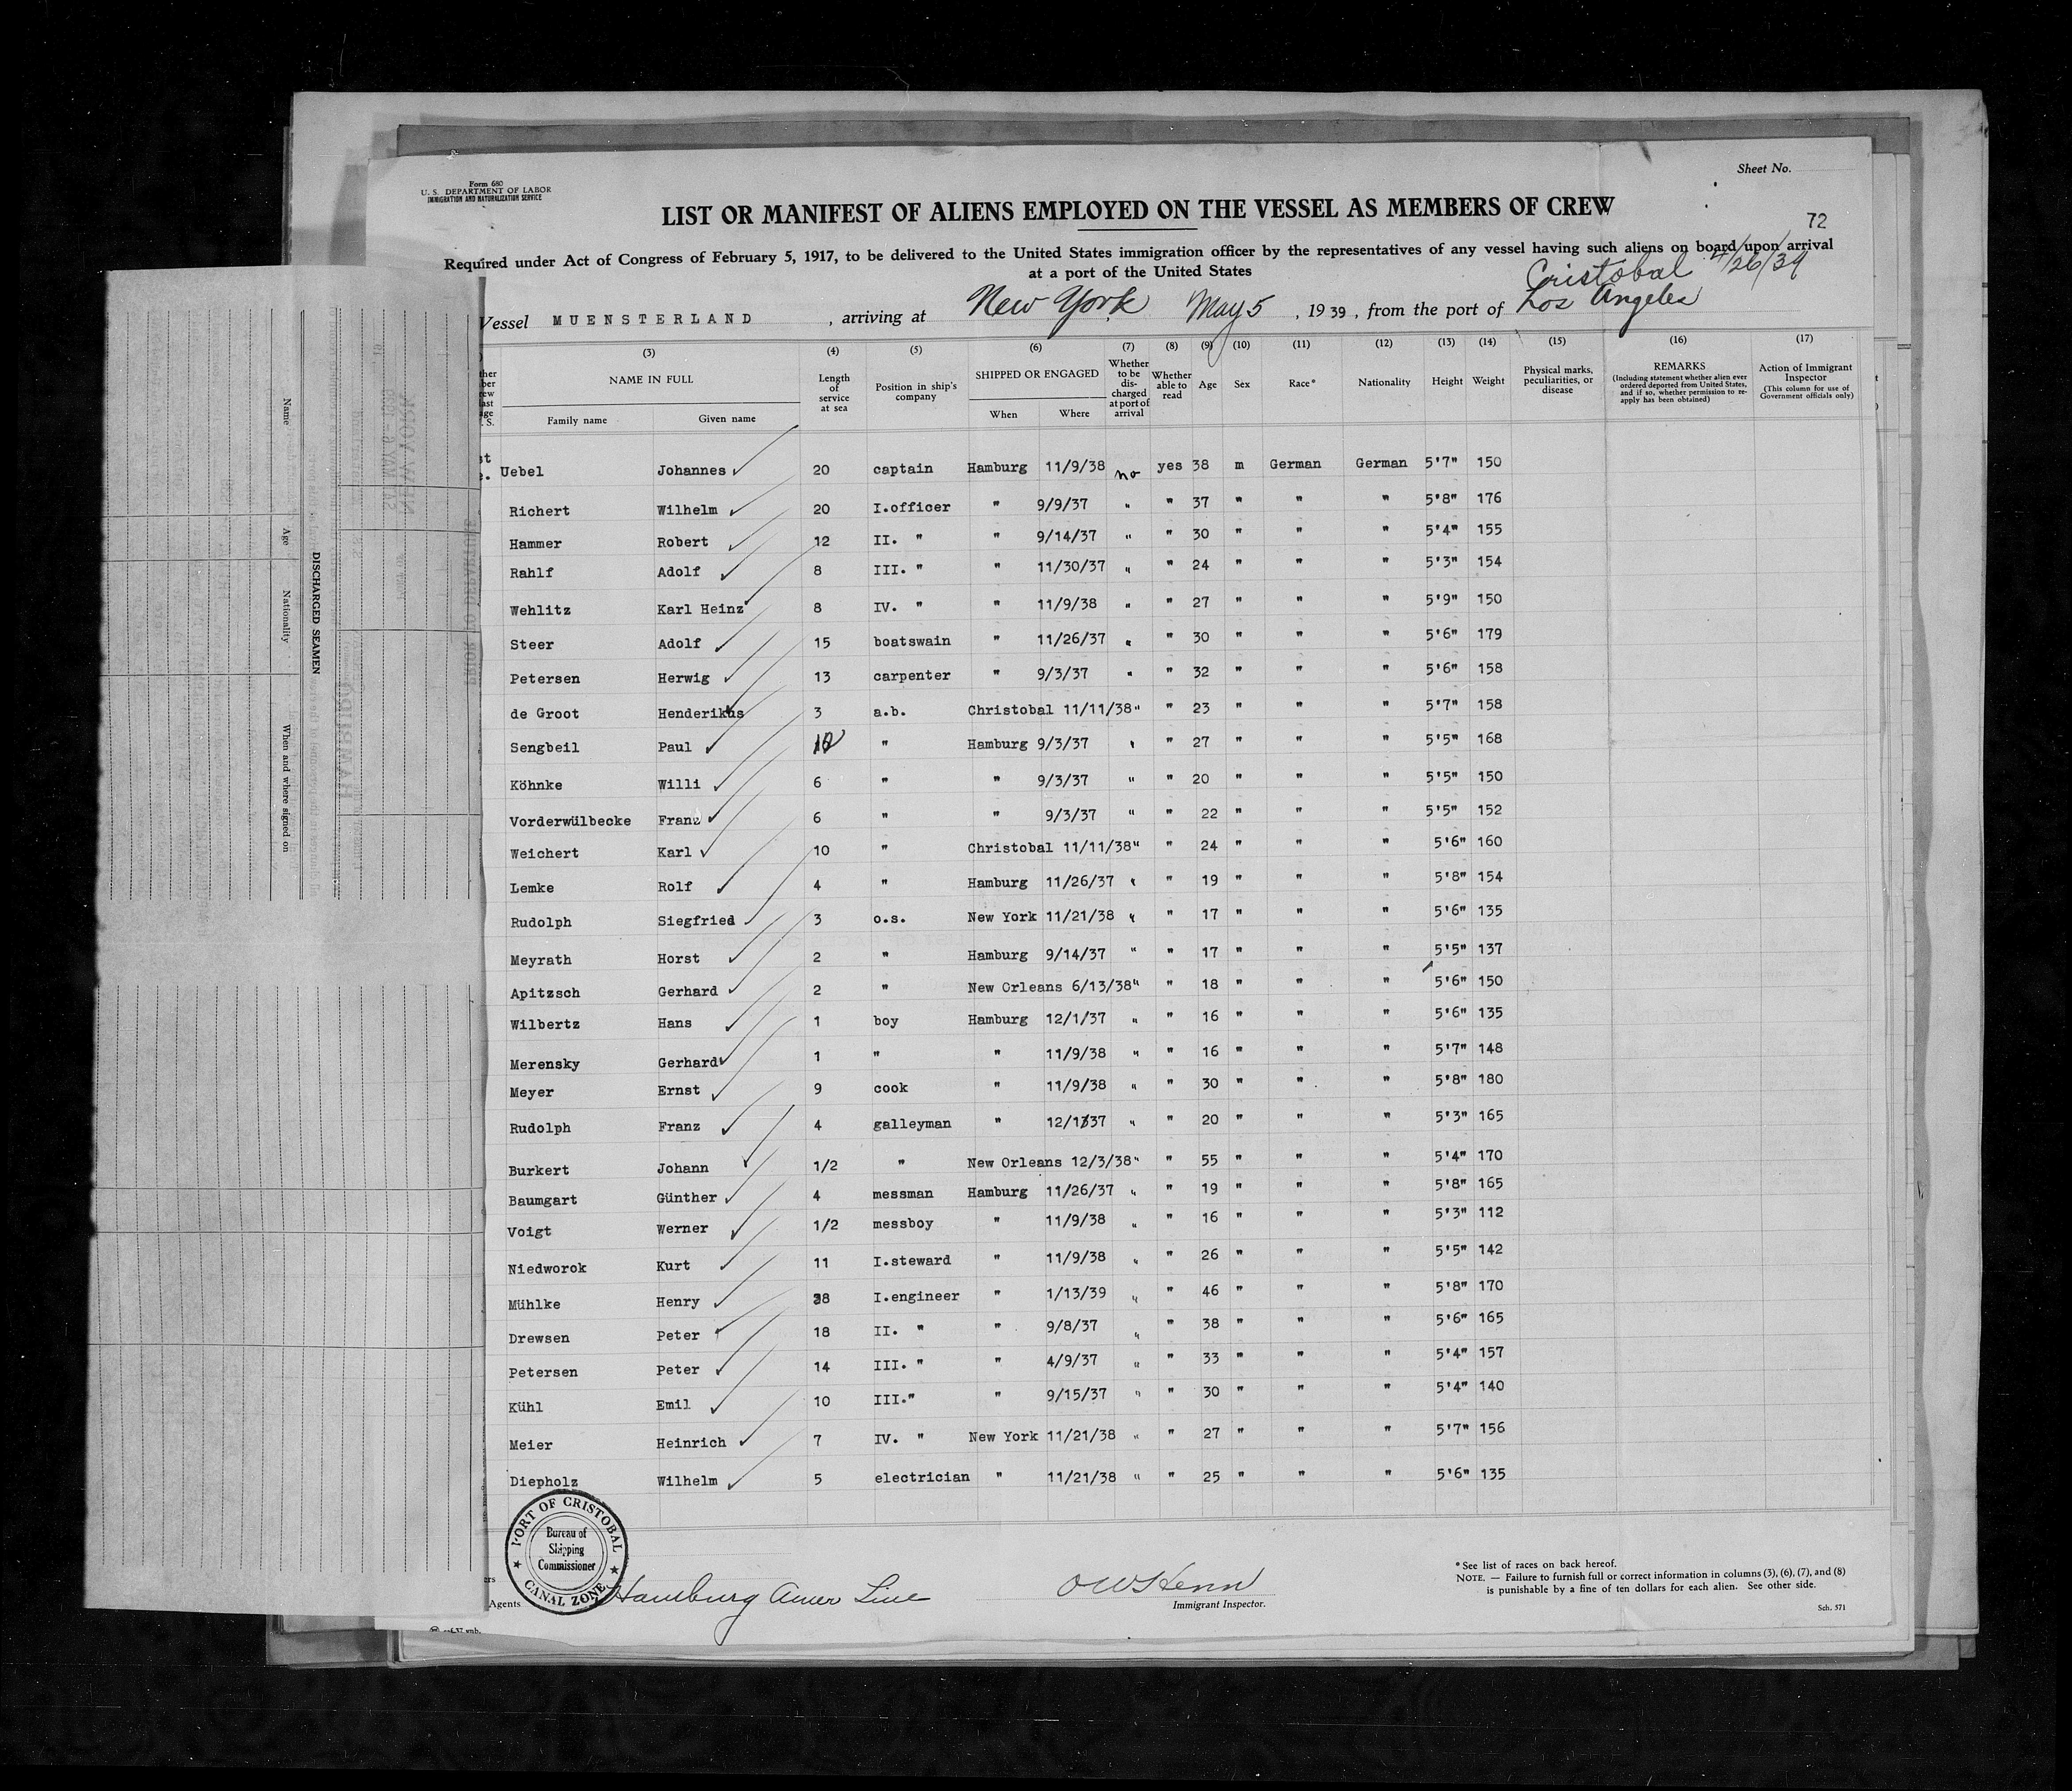 Form 680
U. S. DEPARTMENT OF LABOR
IMMIGRATION AND NATURALIZATION SERVICE
Sheet No.
LIST OR MANIFEST OF ALIENS EMPLOYED ON THE VESSEL AS MEMBERS OF CREW
72
Required under Act of Congress of February 5, 1917, to be delivered to the United States immigration officer by the representatives of any vessel having such aliens on board upon arrival
at a port of the United States
Cristobal 4/26/39
Vessel MUENSTERLAND , arriving at New York May 5 , 1939 , from the port of Los Angeles
(3) (4) (5) (6) (7) (8) (9) (10) (11) (12) (13) (14) (15) (16) (17)
NAME IN FULL Family name Given name Length of service at sea Position in ship's company SHIPPED OR ENGAGED When Where Whether to be discharged at port of arrival Whether able to read Age Sex Race* Nationality Height Weight Physical marks, peculiarities, or disease REMARKS (Including statement whether alien ever ordered deported from United States, and if so, whether permission to reapply has been obtained) Action of Immigrant Inspector (This column for use of Government officials only)
Uebel Johannes 20 captain Hamburg 11/9/38 no yes 38 m German German 5'7" 150
Richert Wilhelm 20 I.officer " 9/9/37 " " 37 " " " 5'8" 176
Hammer Robert 12 II. " " 9/14/37 " " 30 " " " 5'4" 155
Rahlf Adolf 8 III. " " 11/30/37 " " 24 " " " 5'3" 154
Wehlitz Karl Heinz 8 IV. " " 11/9/38 " " 27 " " " 5'9" 150
Steer Adolf 15 boatswain " 11/26/37 " " 30 " " " 5'6" 179
Petersen Herwig 13 carpenter " 9/3/37 " " 32 " " " 5'6" 158
de Groot Henderikus 3 a.b. Christobal 11/11/38 " " 23 " " " 5'7" 158
Sengbeil Paul " Hamburg 9/3/37 " " 27 " " " 5'5" 168
Köhnke Willi 6 " " 9/3/37 " " 20 " " " 5'5" 150
Vorderwülbecke Franz 6 " " 9/3/37 " " 22 " " " 5'5" 152
Weichert Karl 10 " Christobal 11/11/38 " " 24 " " " 5'6" 160
Lemke Rolf 4 " Hamburg 11/26/37 " " 19 " " " 5'8" 154
Rudolph Siegfried 3 o.s. New York 11/21/38 " " 17 " " " 5'6" 135
Meyrath Horst 2 " Hamburg 9/14/37 " " 17 " " " 5'5" 137
Apitzsch Gerhard 2 " New Orleans 6/13/38 " " 18 " " " 5'6" 150
Wilbertz Hans 1 boy Hamburg 12/1/37 " " 16 " " " 5'6" 135
Merensky Gerhard 1 " " 11/9/38 " " 16 " " " 5'7" 148
Meyer Ernst 9 cook " 11/9/38 " " 30 " " " 5'8" 180
Rudolph Franz 4 galleyman " " " 20 " " " 5'3" 165
Burkert Johann 1/2 " New Orleans 12/3/38 " " 55 " " " 5'4" 170
Baumgart Günther 4 messman Hamburg 11/26/37 " " 19 " " " 5'8" 165
Voigt Werner 1/2 messboy " 11/9/38 " " 16 " " " 5'3" 112
Niedworok Kurt 11 I.steward " 11/9/38 " " 26 " " " 5'5" 142
Mühlke Henry 28 I.engineer " 1/13/39 " " 46 " " " 5'8" 170
Drewsen Peter 18 II. " " 9/8/37 " " 38 " " " 5'6" 165
Petersen Peter 14 III. " " 4/9/37 " " 33 " " " 5'4" 157
Kühl Emil 10 III." " 9/15/37 " " 30 " " " 5'4" 140
Meier Heinrich 7 IV. " New York 11/21/38 " " 27 " " " 5'7" 156
Diepholz Wilhelm 5 electrician " 11/21/38 " " 25 " " " 5'6" 135
PORT OF CRISTOBAL
Bureau of
Shipping
Commissioner
CANAL ZONE
Agents Hamburg Amer Line
Immigrant Inspector.
*See list of races on back hereof.
NOTE. — Failure to furnish full or correct information in columns (3), (6), (7), and (8)
is punishable by a fine of ten dollars for each alien. See other side.
Sch. 571
DISCHARGED SEAMEN
Name
Age
Nationality
When and where signed on
NEW YORK
HAMBURG